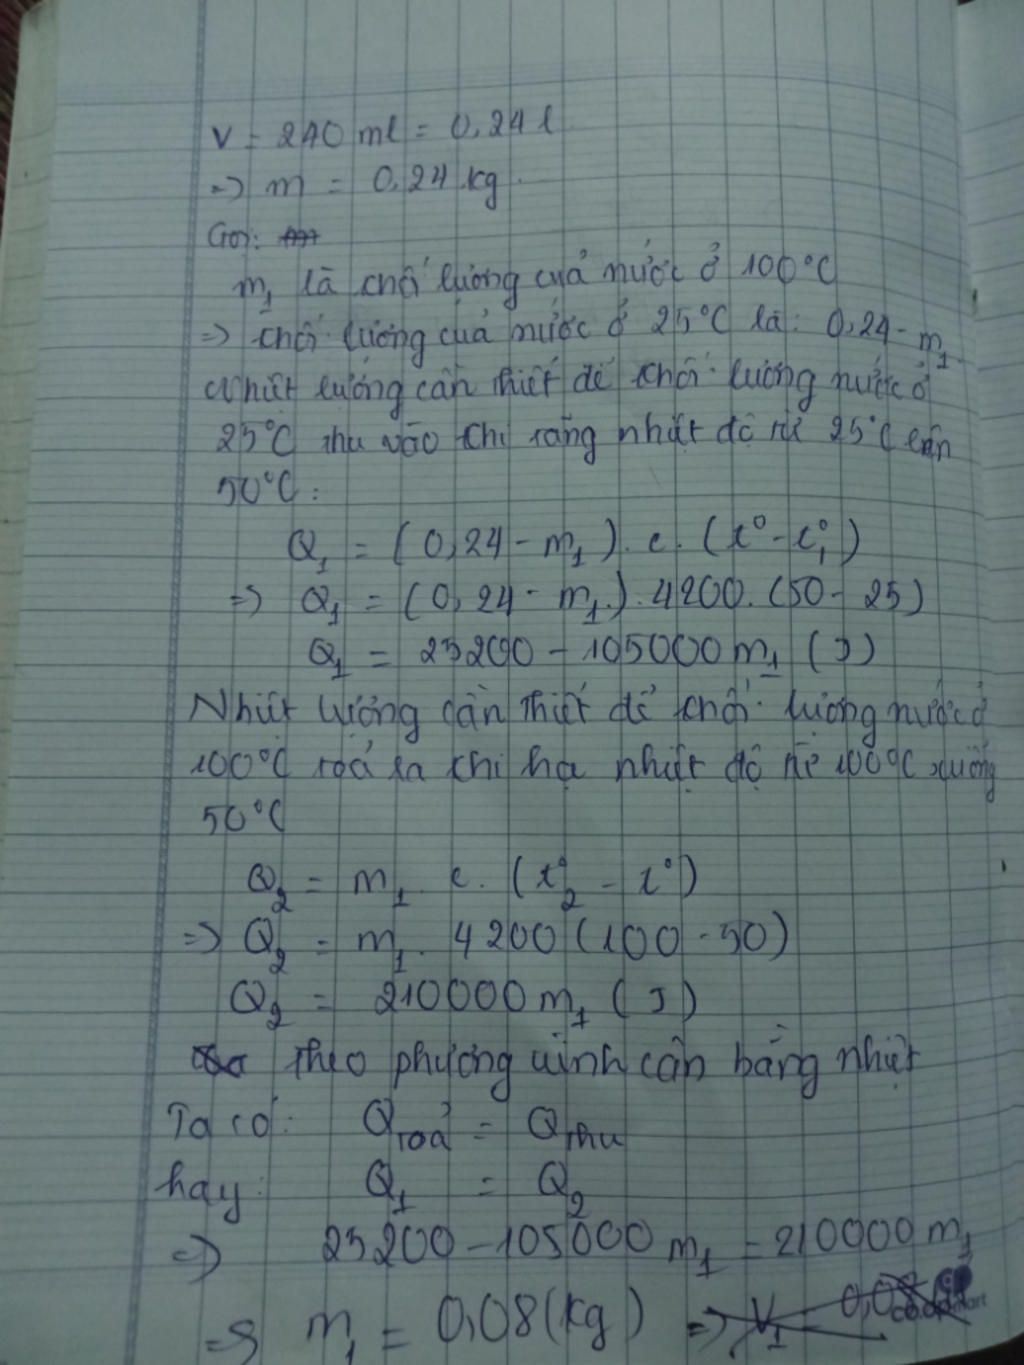 V = 240 ml = 0,24 l
=> m = 0,24 kg.
Gọi:
m₁ là khối lượng của nước ở 100°C
=> khối lượng của nước ở 25°C là: 0,24 - m₁
Nhiệt lượng cần thiết để khối lượng nước ở
25°C thu vào khi tăng nhiệt độ từ 25°C lên
50°C:
Q₁ = (0,24 - m₁). c. (t° - t°₁)
=> Q₁ = (0,24 - m₁). 4200. (50 - 25)
Q₁ = 25200 - 105000 m₁ (J)
Nhiệt lượng cần thiết để khối lượng nước ở
100°C toả ra khi hạ nhiệt độ từ 100°C xuống
50°C
Q₂ = m₁. c. (t°₂ - t°)
=> Q₂ = m₁. 4200 (100 - 50)
Q₂ = 210000 m₁ (J)
Theo phương trình cân bằng nhiệt
Ta có: Q toả = Q thu
hay: Q₁ = Q₂
=> 25200 - 105000 m₁ = 210000 m₁
=> m₁ = 0,08 (kg) =>